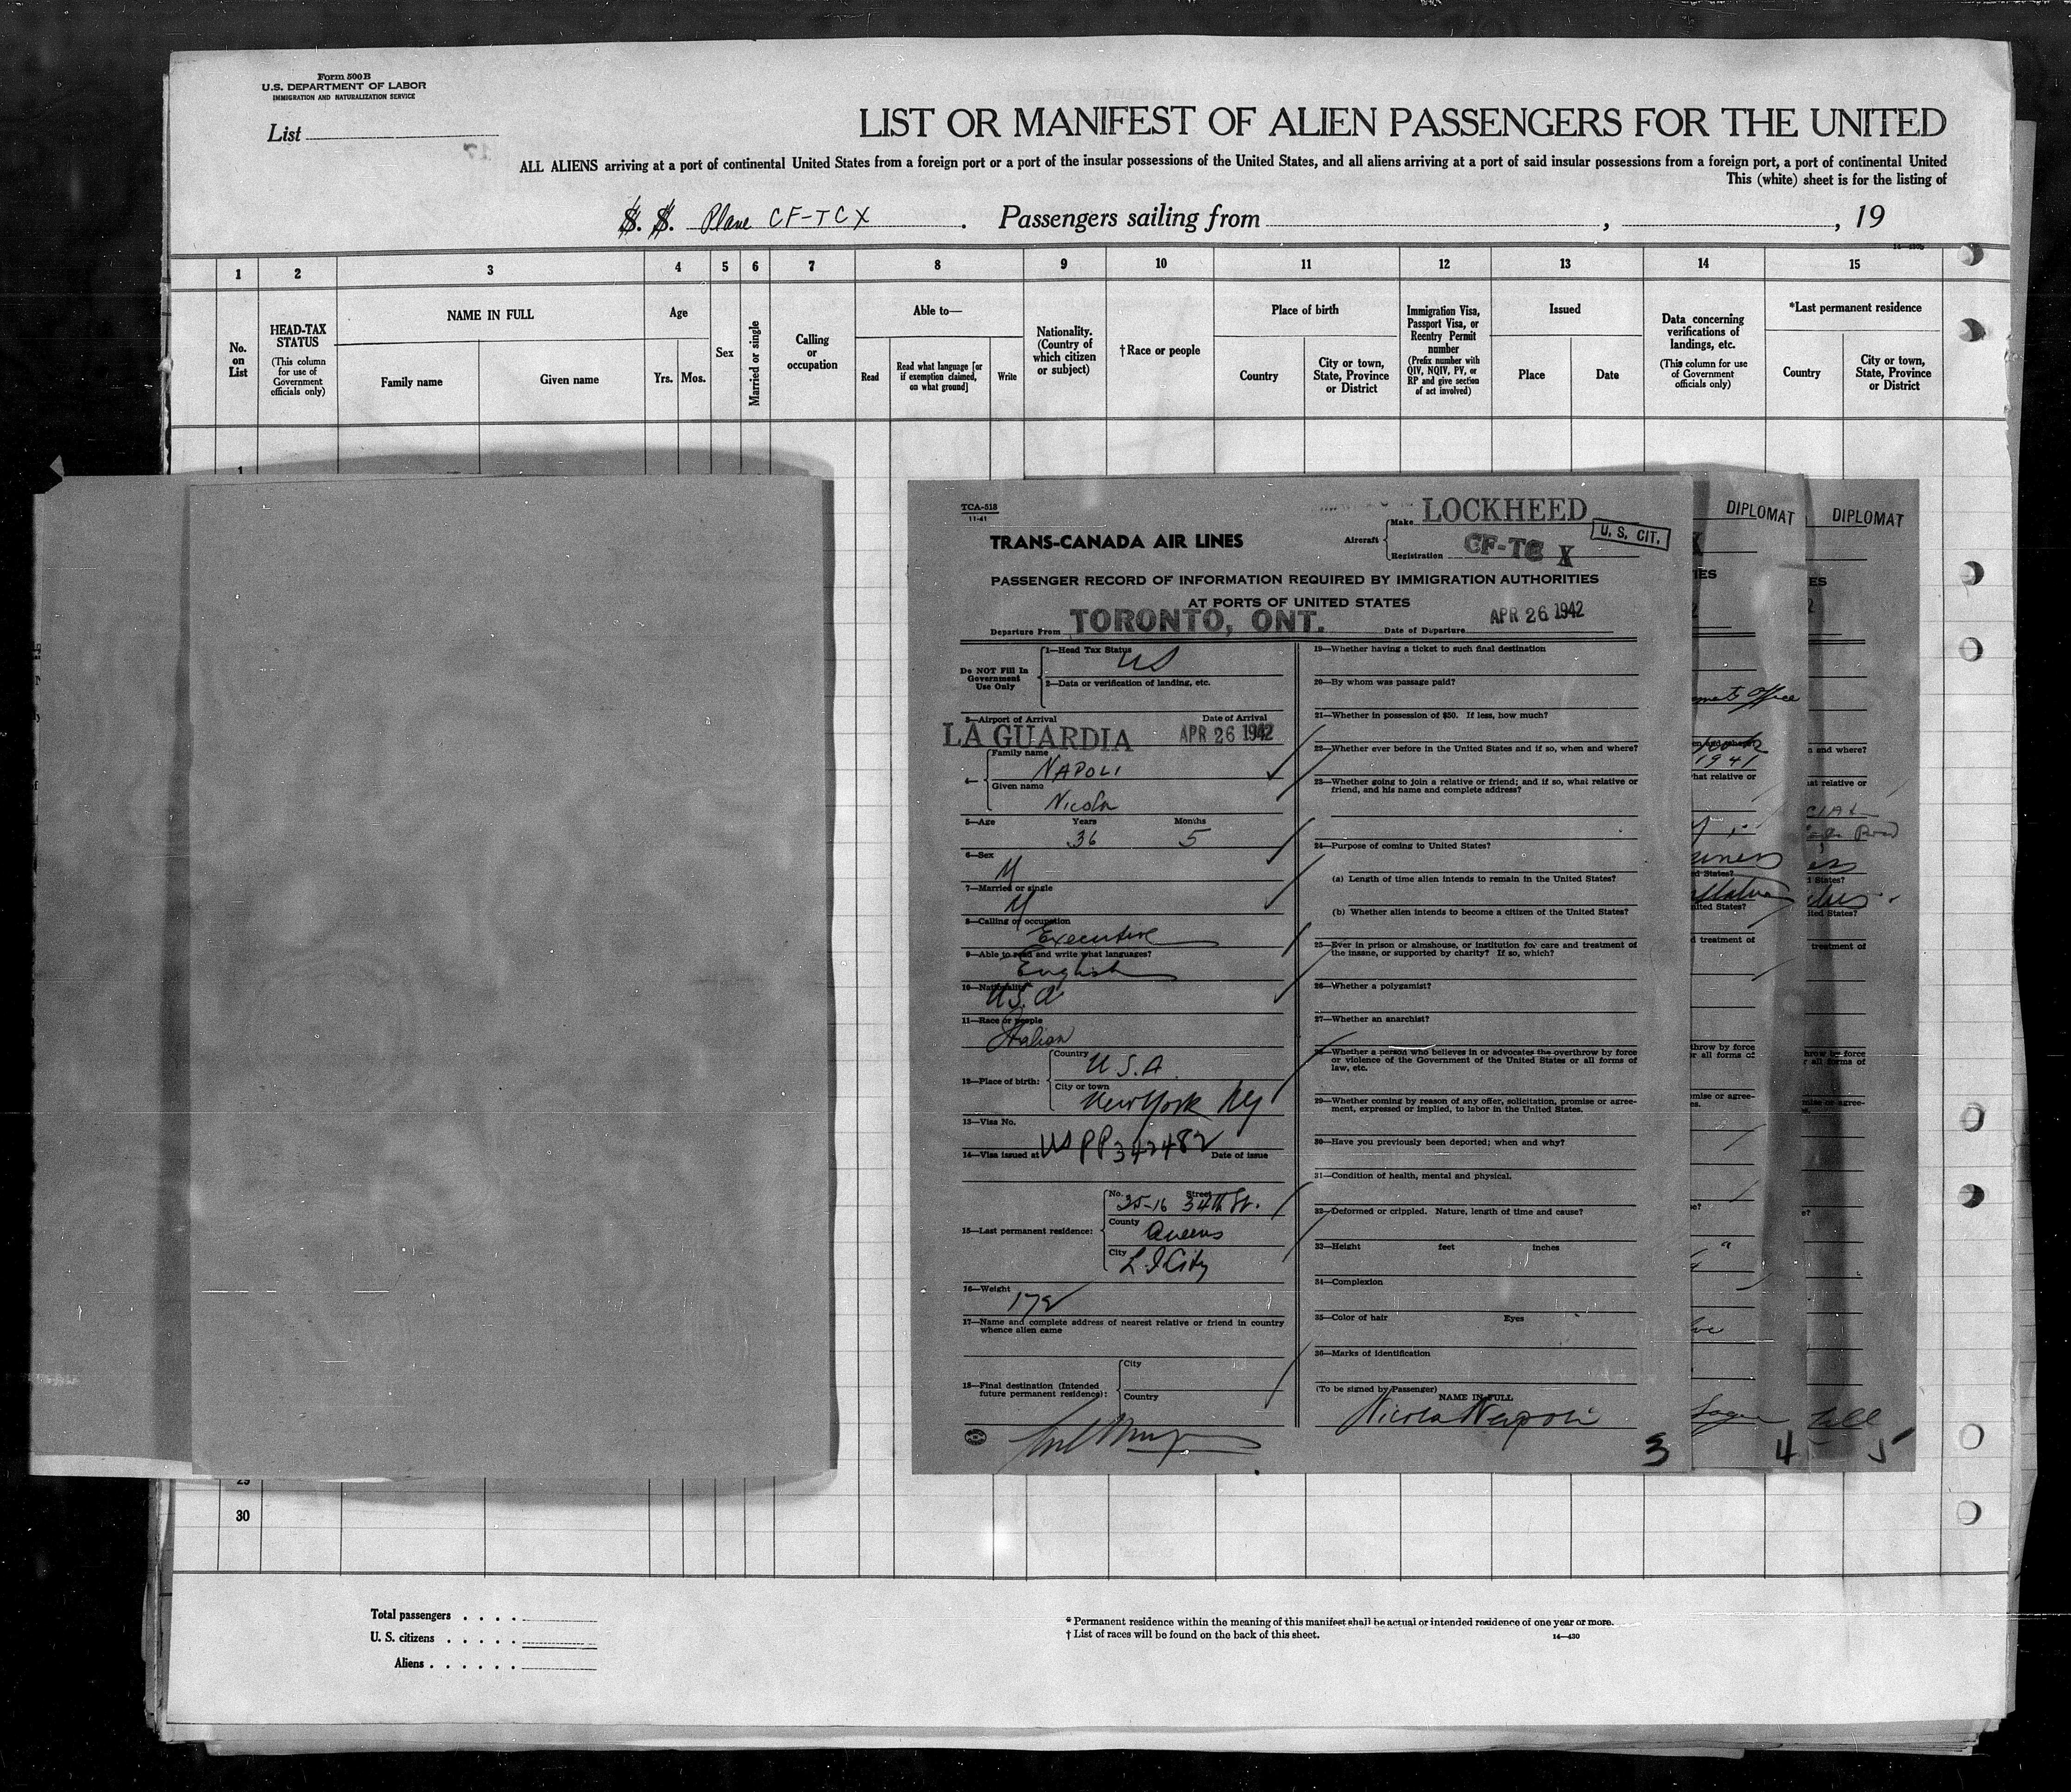 Form 500 B
U.S. DEPARTMENT OF LABOR
IMMIGRATION AND NATURALIZATION SERVICE
List
17
LIST OR MANIFEST OF ALIEN PASSENGERS FOR THE UNITED
ALL ALIENS arriving at a port of continental United States from a foreign port or a port of the insular possessions of the United States, and all aliens arriving at a port of said insular possessions from a foreign port, a port of continental United
This (white) sheet is for the listing of
S. S. Plane CF-TCX. Passengers sailing from , , 19
1 2 3 4 5 6 7 8 9 10 11 12 13 14 15
No. on List
HEAD-TAX STATUS
(This column for use of Government officials only)
NAME IN FULL
Family name
Given name
Age
Yrs. Mos.
Sex
Married or single
Calling or occupation
Able to—
Read
Read what language [or if exemption claimed, on what ground]
Write
Nationality. (Country of which citizen or subject)
†Race or people
Place of birth
Country
City or town, State, Province or District
Immigration Visa, Passport Visa, or Reentry Permit number
(Prefix number with QIV, NQIV, PV, or RP and give section of act involved)
Issued
Place
Date
Data concerning verifications of landings, etc.
(This column for use of Government officials only)
*Last permanent residence
Country
City or town, State, Province or District
1
TCA-518
11-41
TRANS-CANADA AIR LINES
Aircraft
Make LOCKHEED
Registration CF-TC X
U. S. CIT.
PASSENGER RECORD OF INFORMATION REQUIRED BY IMMIGRATION AUTHORITIES
AT PORTS OF UNITED STATES
Departure From TORONTO, ONT.
Date of Departure APR 26 1942
Do NOT Fill In Government Use Only
1—Head Tax Status US
2—Data or verification of landing, etc.
3—Airport of Arrival Date of Arrival
LA GUARDIA APR 26 1942
4—
Family name
NAPOLI
Given name
Nicola
5—Age Years Months
36 5
6—Sex
M
7—Married or single
M
8—Calling or occupation
Executive
9—Able to read and write what languages?
English
10—Nationality
U.S.A
11—Race or people
Italian
12—Place of birth:
Country
U.S.A.
City or town
New York NY
13—Visa No.
14—Visa issued at US PP 342482 Date of issue
15—Last permanent residence:
No. Street
25-16 34th St.
County
Queens
City
L I City
16—Weight
172
17—Name and complete address of nearest relative or friend in country
whence alien came
18—Final destination (Intended
future permanent residence):
City
Country
19—Whether having a ticket to such final destination
20—By whom was passage paid?
21—Whether in possession of $50. If less, how much?
22—Whether ever before in the United States and if so, when and where?
23—Whether going to join a relative or friend; and if so, what relative or
friend, and his name and complete address?
24—Purpose of coming to United States?
(a) Length of time alien intends to remain in the United States?
(b) Whether alien intends to become a citizen of the United States?
25—Ever in prison or almshouse, or institution for care and treatment of
the insane, or supported by charity? If so, which?
26—Whether a polygamist?
27—Whether an anarchist?
28—Whether a person who believes in or advocates the overthrow by force
or violence of the Government of the United States or all forms of
law, etc.
29—Whether coming by reason of any offer, solicitation, promise or agree-
ment, expressed or implied, to labor in the United States.
30—Have you previously been deported; when and why?
31—Condition of health, mental and physical.
32—Deformed or crippled. Nature, length of time and cause?
33—Height feet inches
34—Complexion
35—Color of hair Eyes
36—Marks of identification
(To be signed by Passenger)
NAME IN FULL
Nicola Napoli
3
DIPLOMAT
Office
1941
hat relative or
ed States?
nited States?
d treatment of
throw by force
r all forms of
mise or agree-
4
DIPLOMAT
n and where?
at relative or
d States?
ited States?
treatment of
hrow by force
r all forms of
mise or agree-
5
30
Total passengers
U. S. citizens
Aliens
* Permanent residence within the meaning of this manifest shall be actual or intended residence of one year or more.
† List of races will be found on the back of this sheet.
14—430